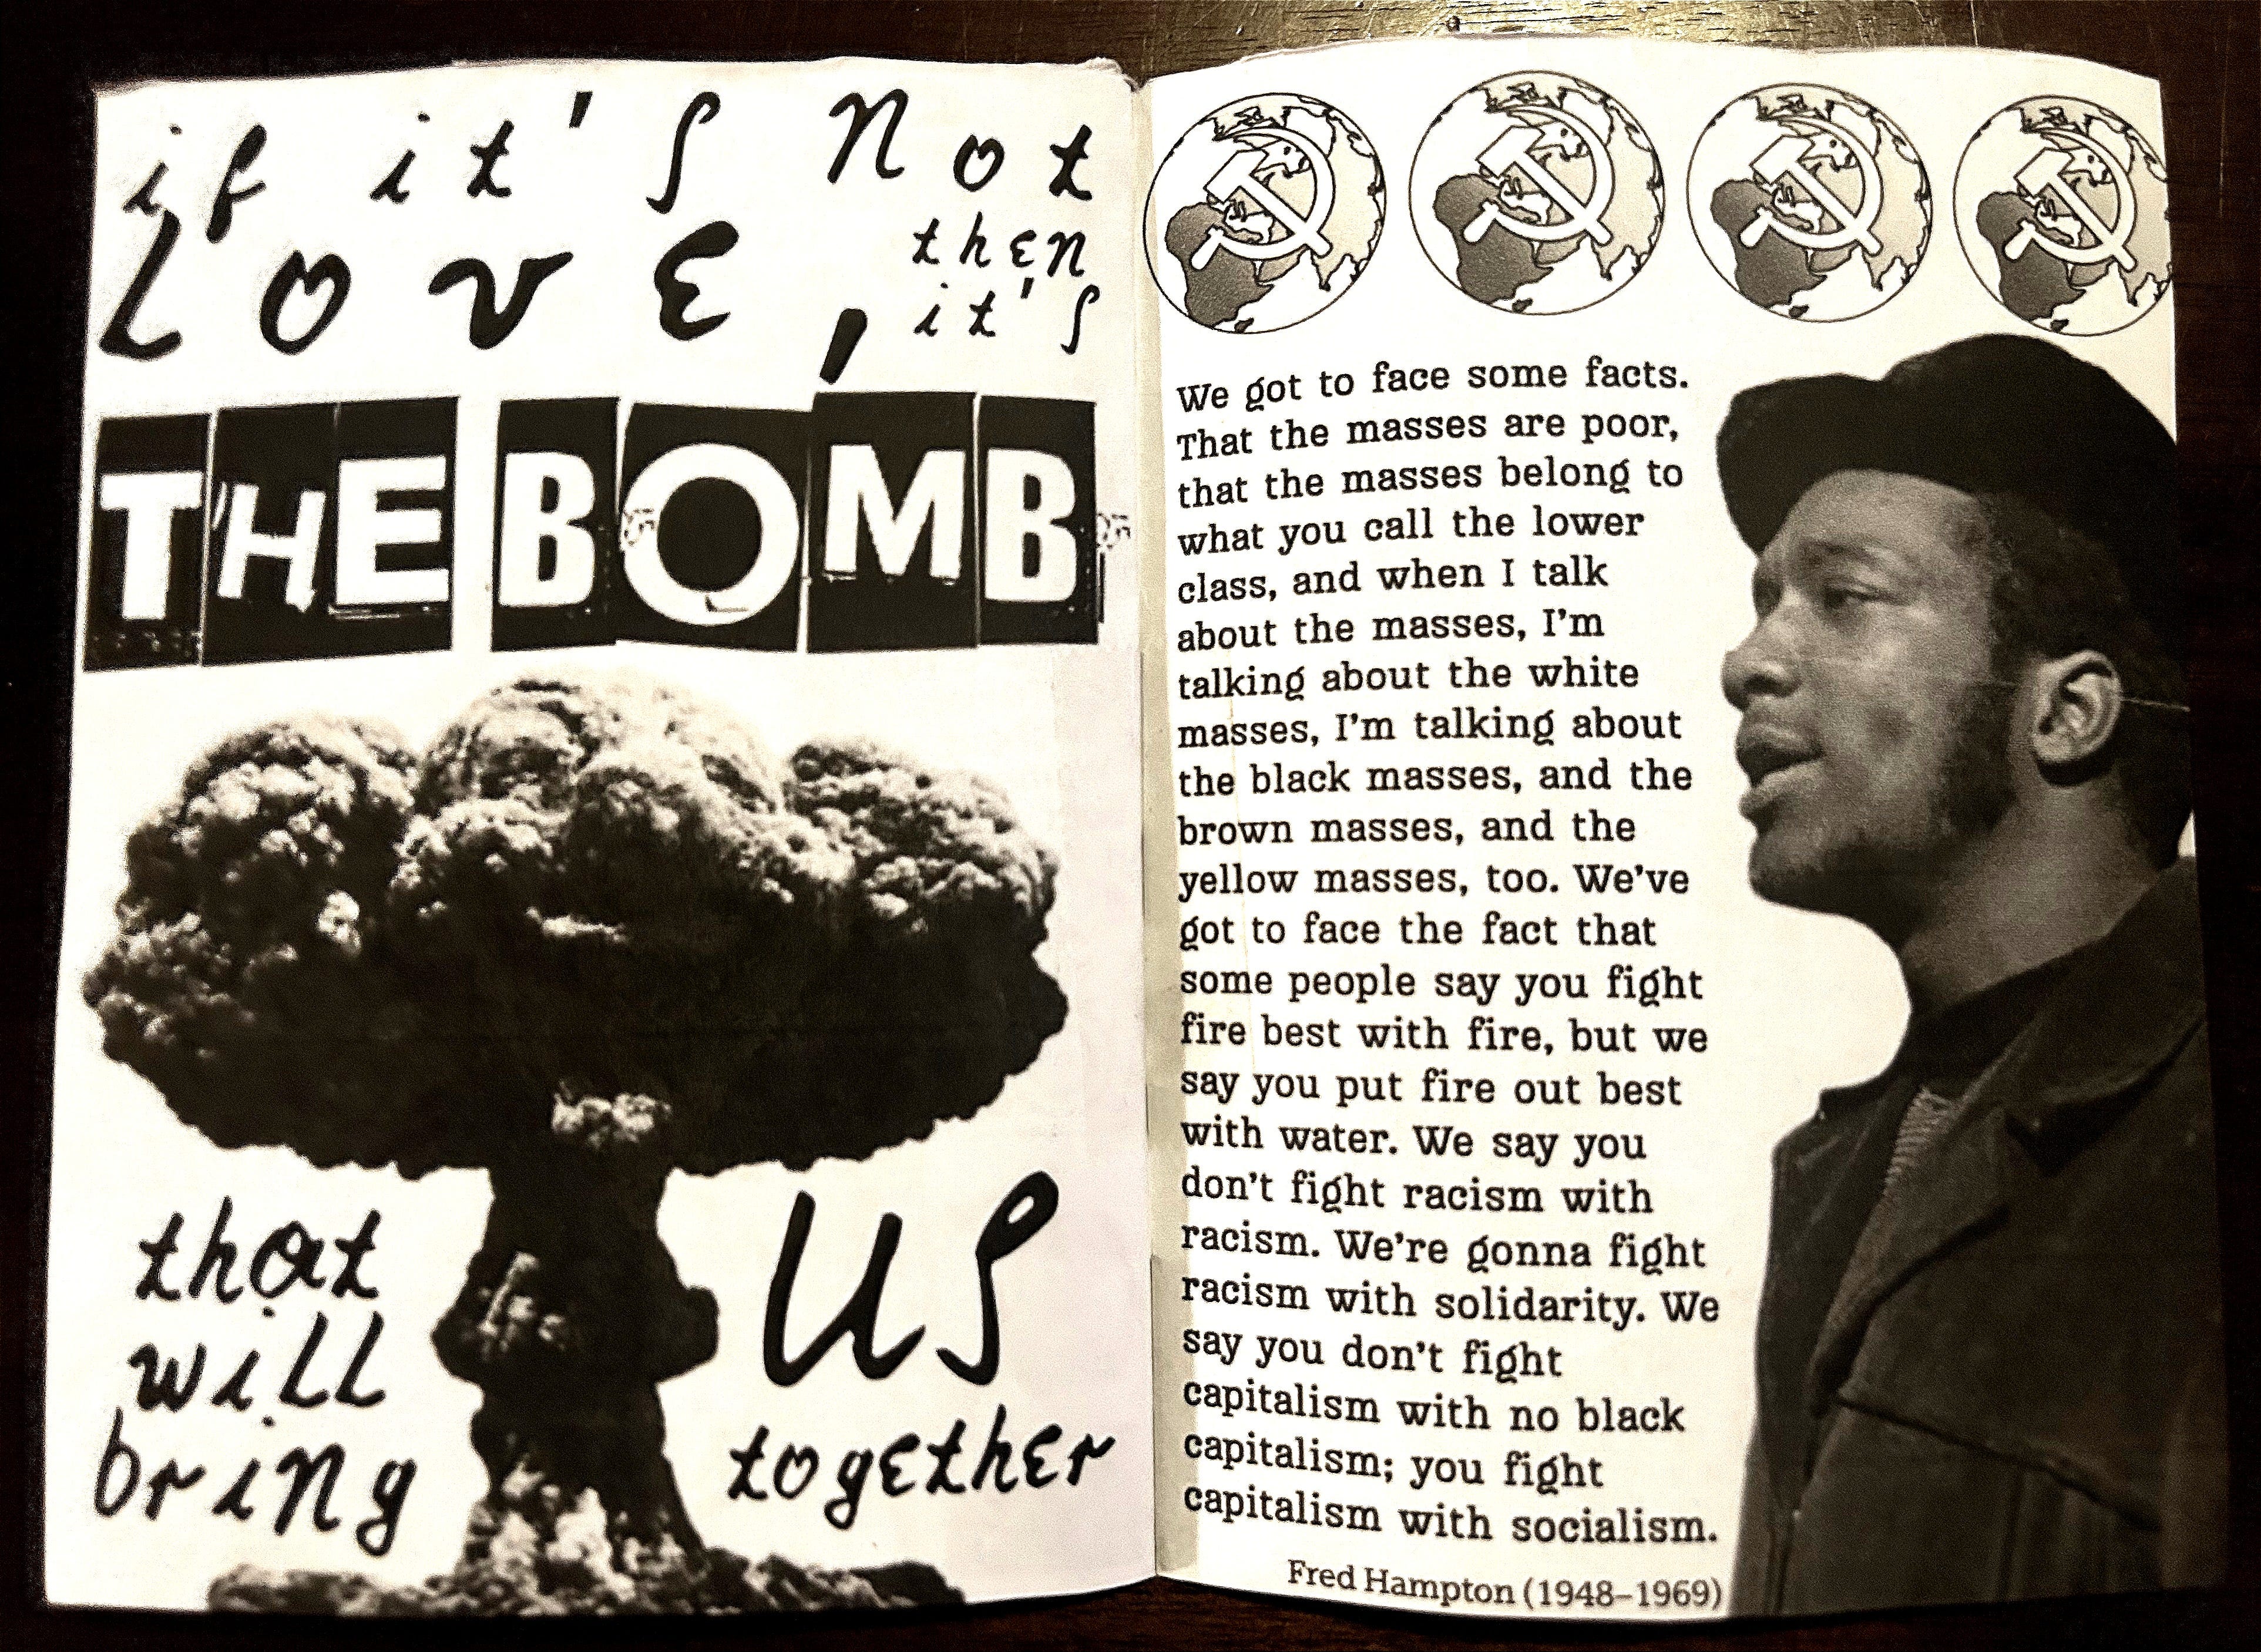 if it's not
love, then
it's
THE BOMB
that
will
bring
us
together
We got to face some facts.
That the masses are poor,
that the masses belong to
what you call the lower
class, and when I talk
about the masses, I'm
talking about the white
masses, I'm talking about
the black masses, and the
brown masses, and the
yellow masses, too. We've
got to face the fact that
some people say you fight
fire best with fire, but we
say you put fire out best
with water. We say you
don't fight racism with
racism. We're gonna fight
racism with solidarity. We
say you don't fight
capitalism with no black
capitalism; you fight
capitalism with socialism.
Fred Hampton (1948–1969)